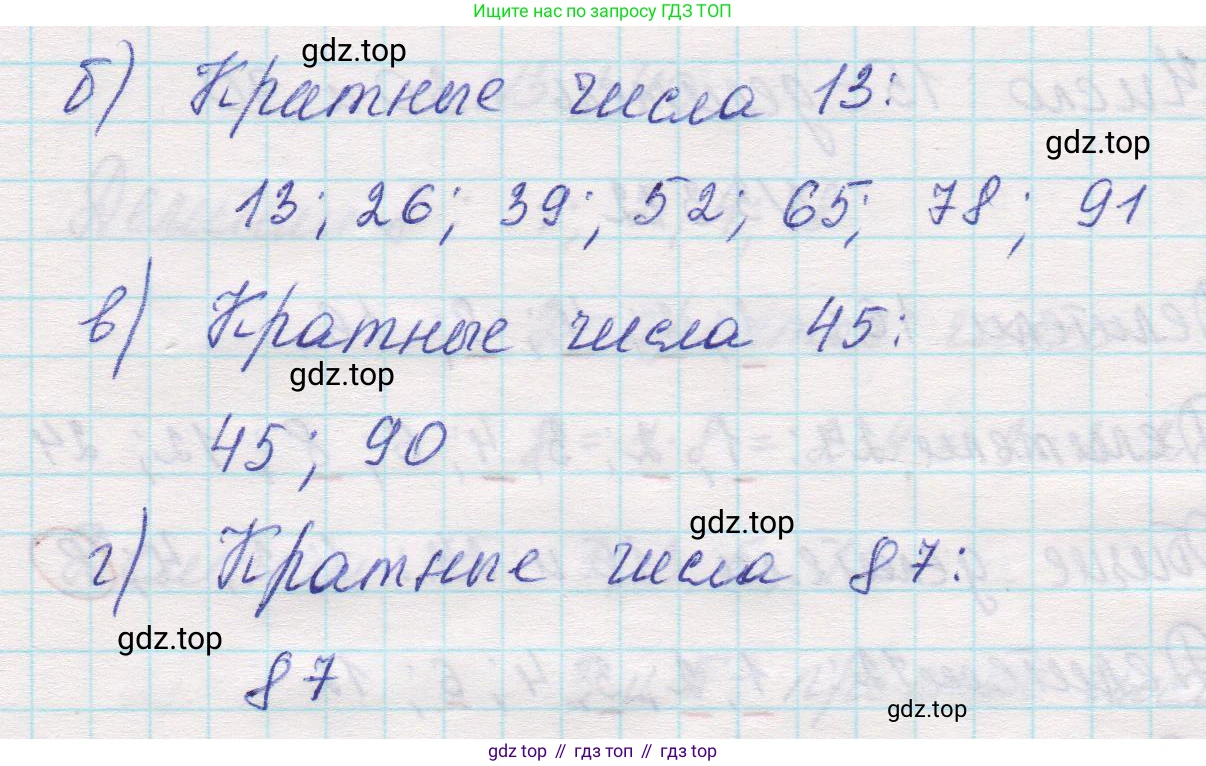 Ищите нас по запросу ГДЗ ТОП
gdz.top
б) Кратные числа 13:
gdz.top
13; 26; 39; 52; 65; 78; 91
в) Кратные числа 45:
gdz.top
45; 90
gdz.top
г) Кратные числа 87:
gdz.top
87
gdz.top
gdz top // гдз топ // gdz top